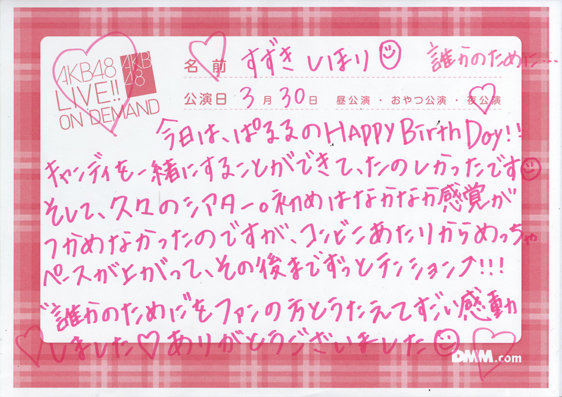 AKB48
LIVE!!
ON DEMAND
AKB
48
名前 すずき しほり 誰かのために…
公演日 3月30日 昼公演・おやつ公演・夜公演
今日は、ぱるるのHAPPY BirthDay!!
キャンディを一緒にすることができて、たのしかったです
そして、久々のシアター。初めはなかなか感覚が
つかめなかったのですが、コンビニあたりからめっちゃ
ペースが上がって、その後までずっとテンション↑!!!
"誰かのために"をファンの方とうたえてすごい感動
しました♡ありがとうございました
DMM.com